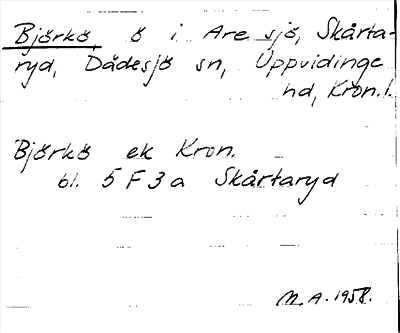 Björkö, ö i Are sjö, Skårta-
ryd, Dädesjö sn, Uppvidinge
hd, Kron.l.
Björkö ek Kron.
bl. 5 F 3 a Skårtaryd
M.A. 1958.